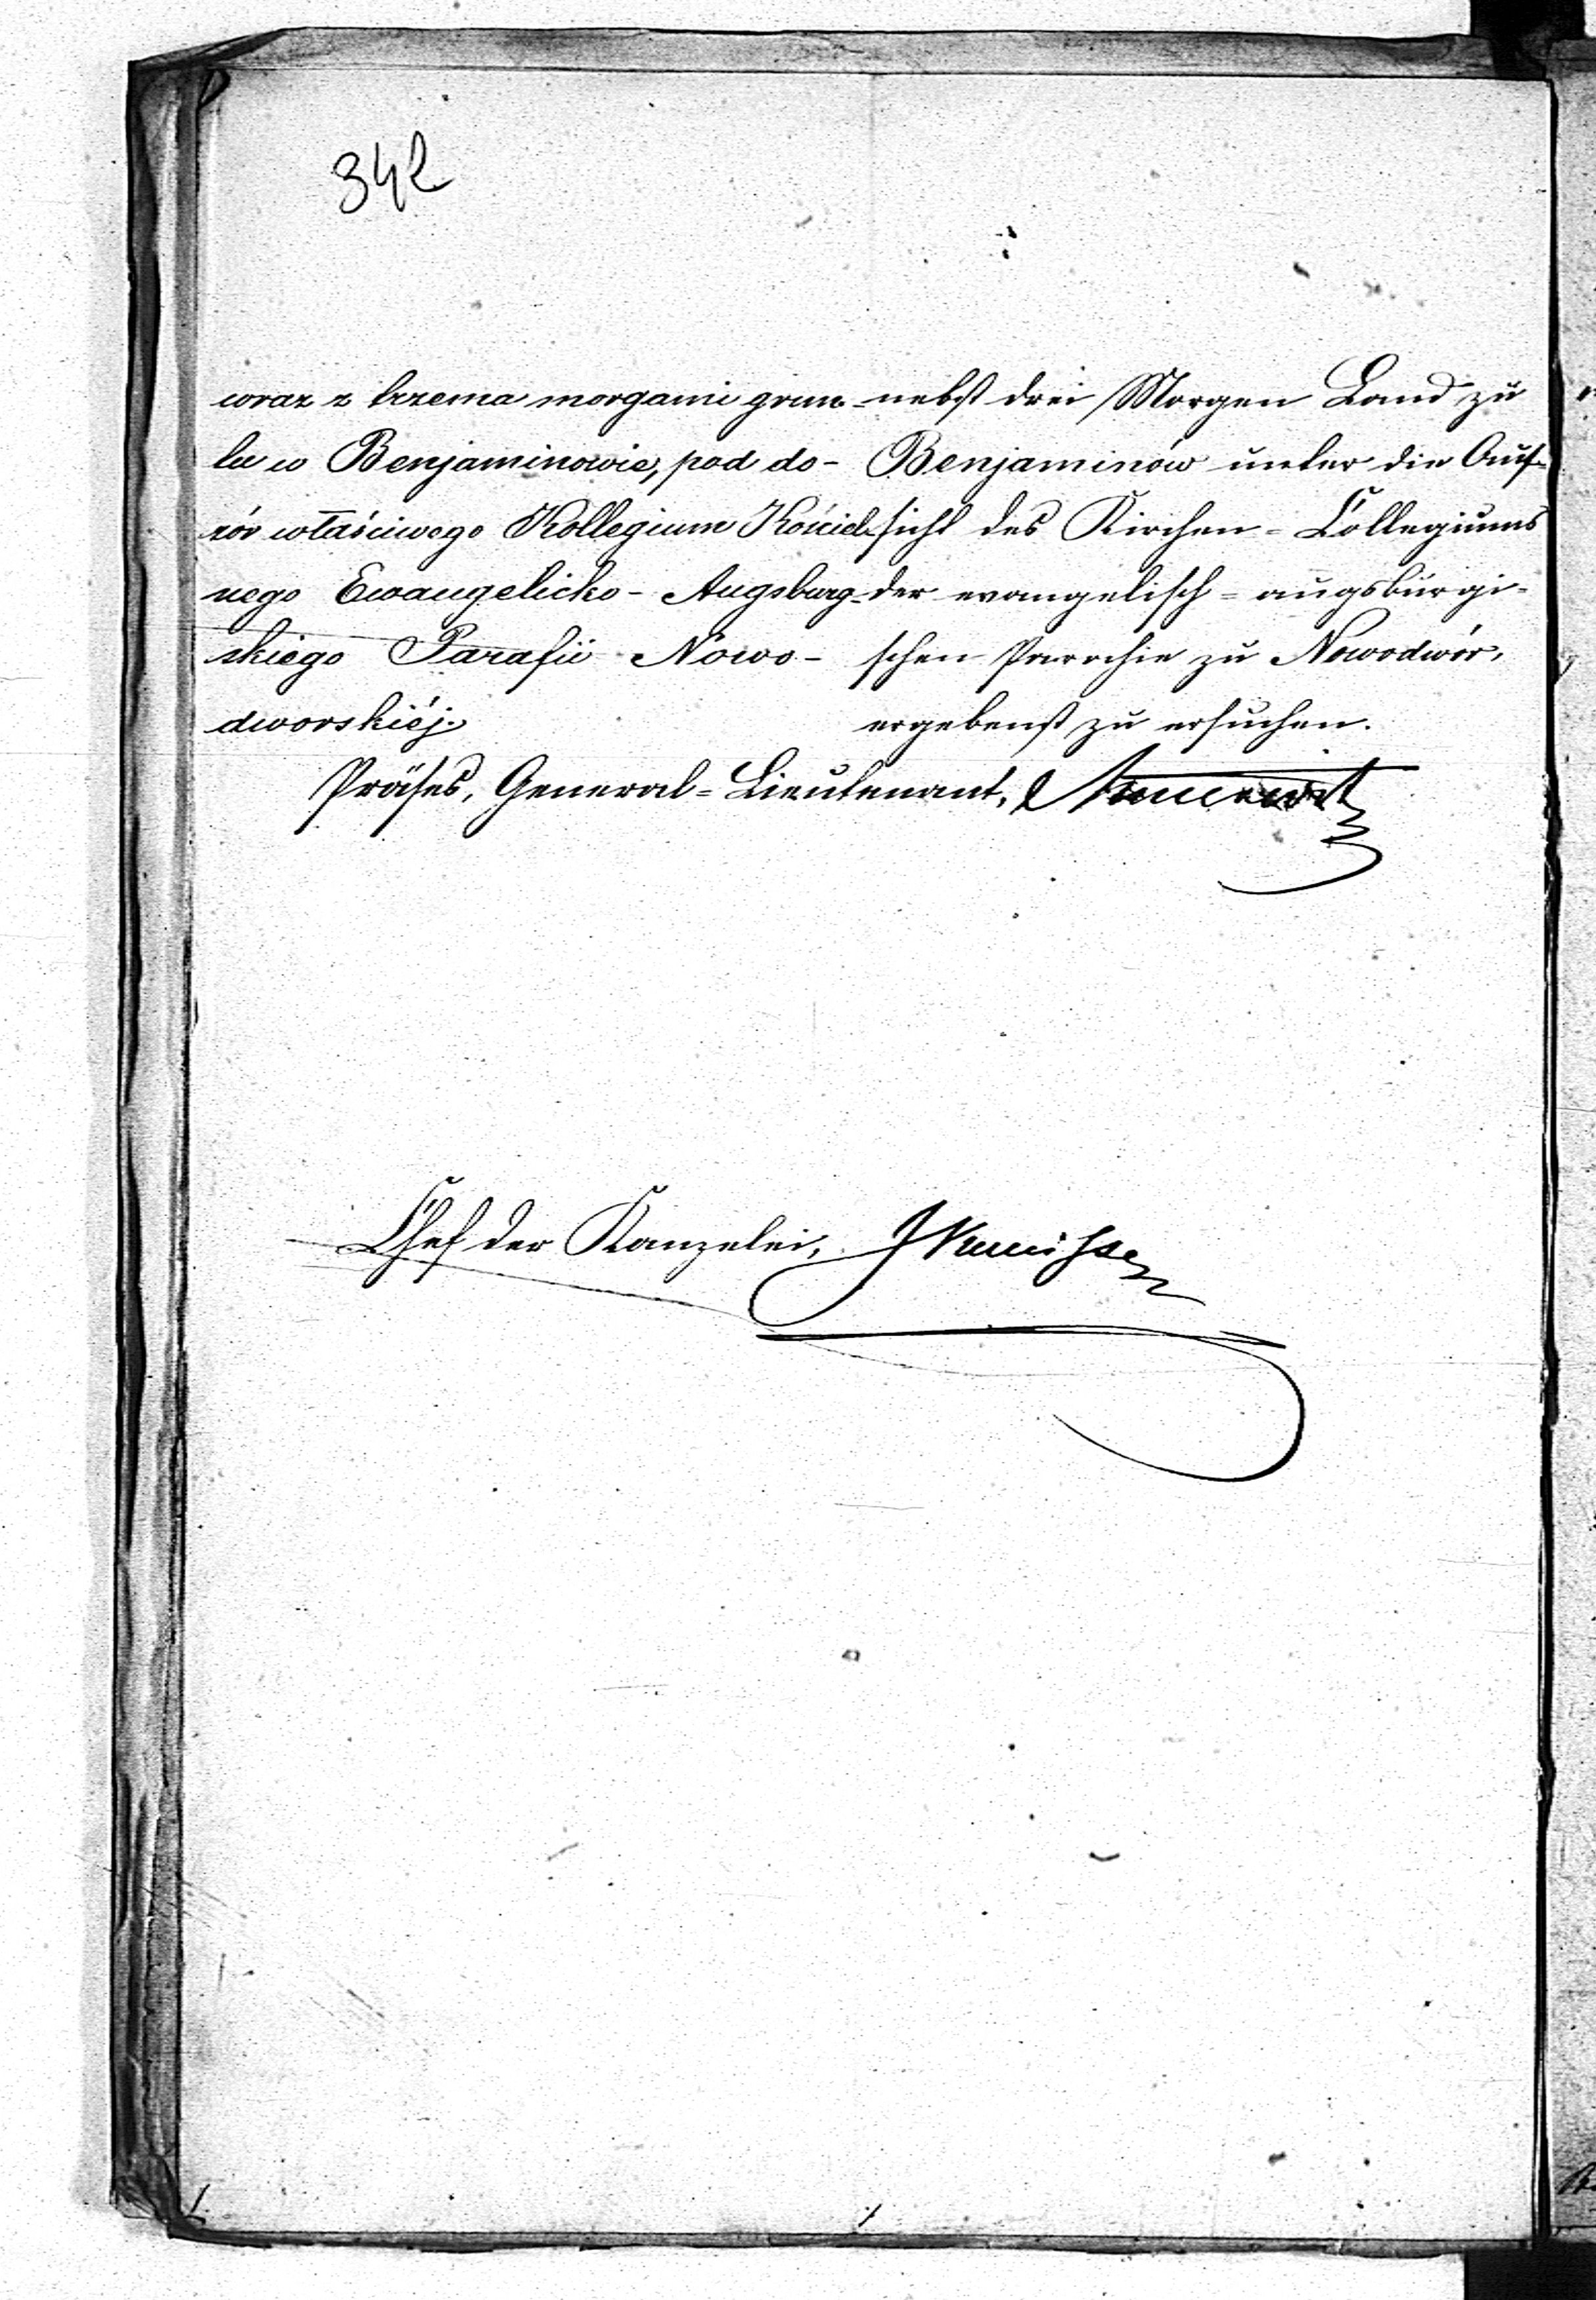 342
wraz z trzema morgami grun-
tu w Benjaminowie, pod do-
zór właściwego Kollegium Kościel-
nego Ewangelicko-Augsburg-
skiego Parafii Nowo-
dworskiéj.
nebst drei Morgen Land zu
Benjaminów unter die Auf-
sicht des Kirchen-Collegiums
der evangelisch-augsburgi-
schen Parochie zu Nowodwór,
ergebenst zu ersuchen.
Präses, General-Lieutenant,
Chef der Kanzelei,